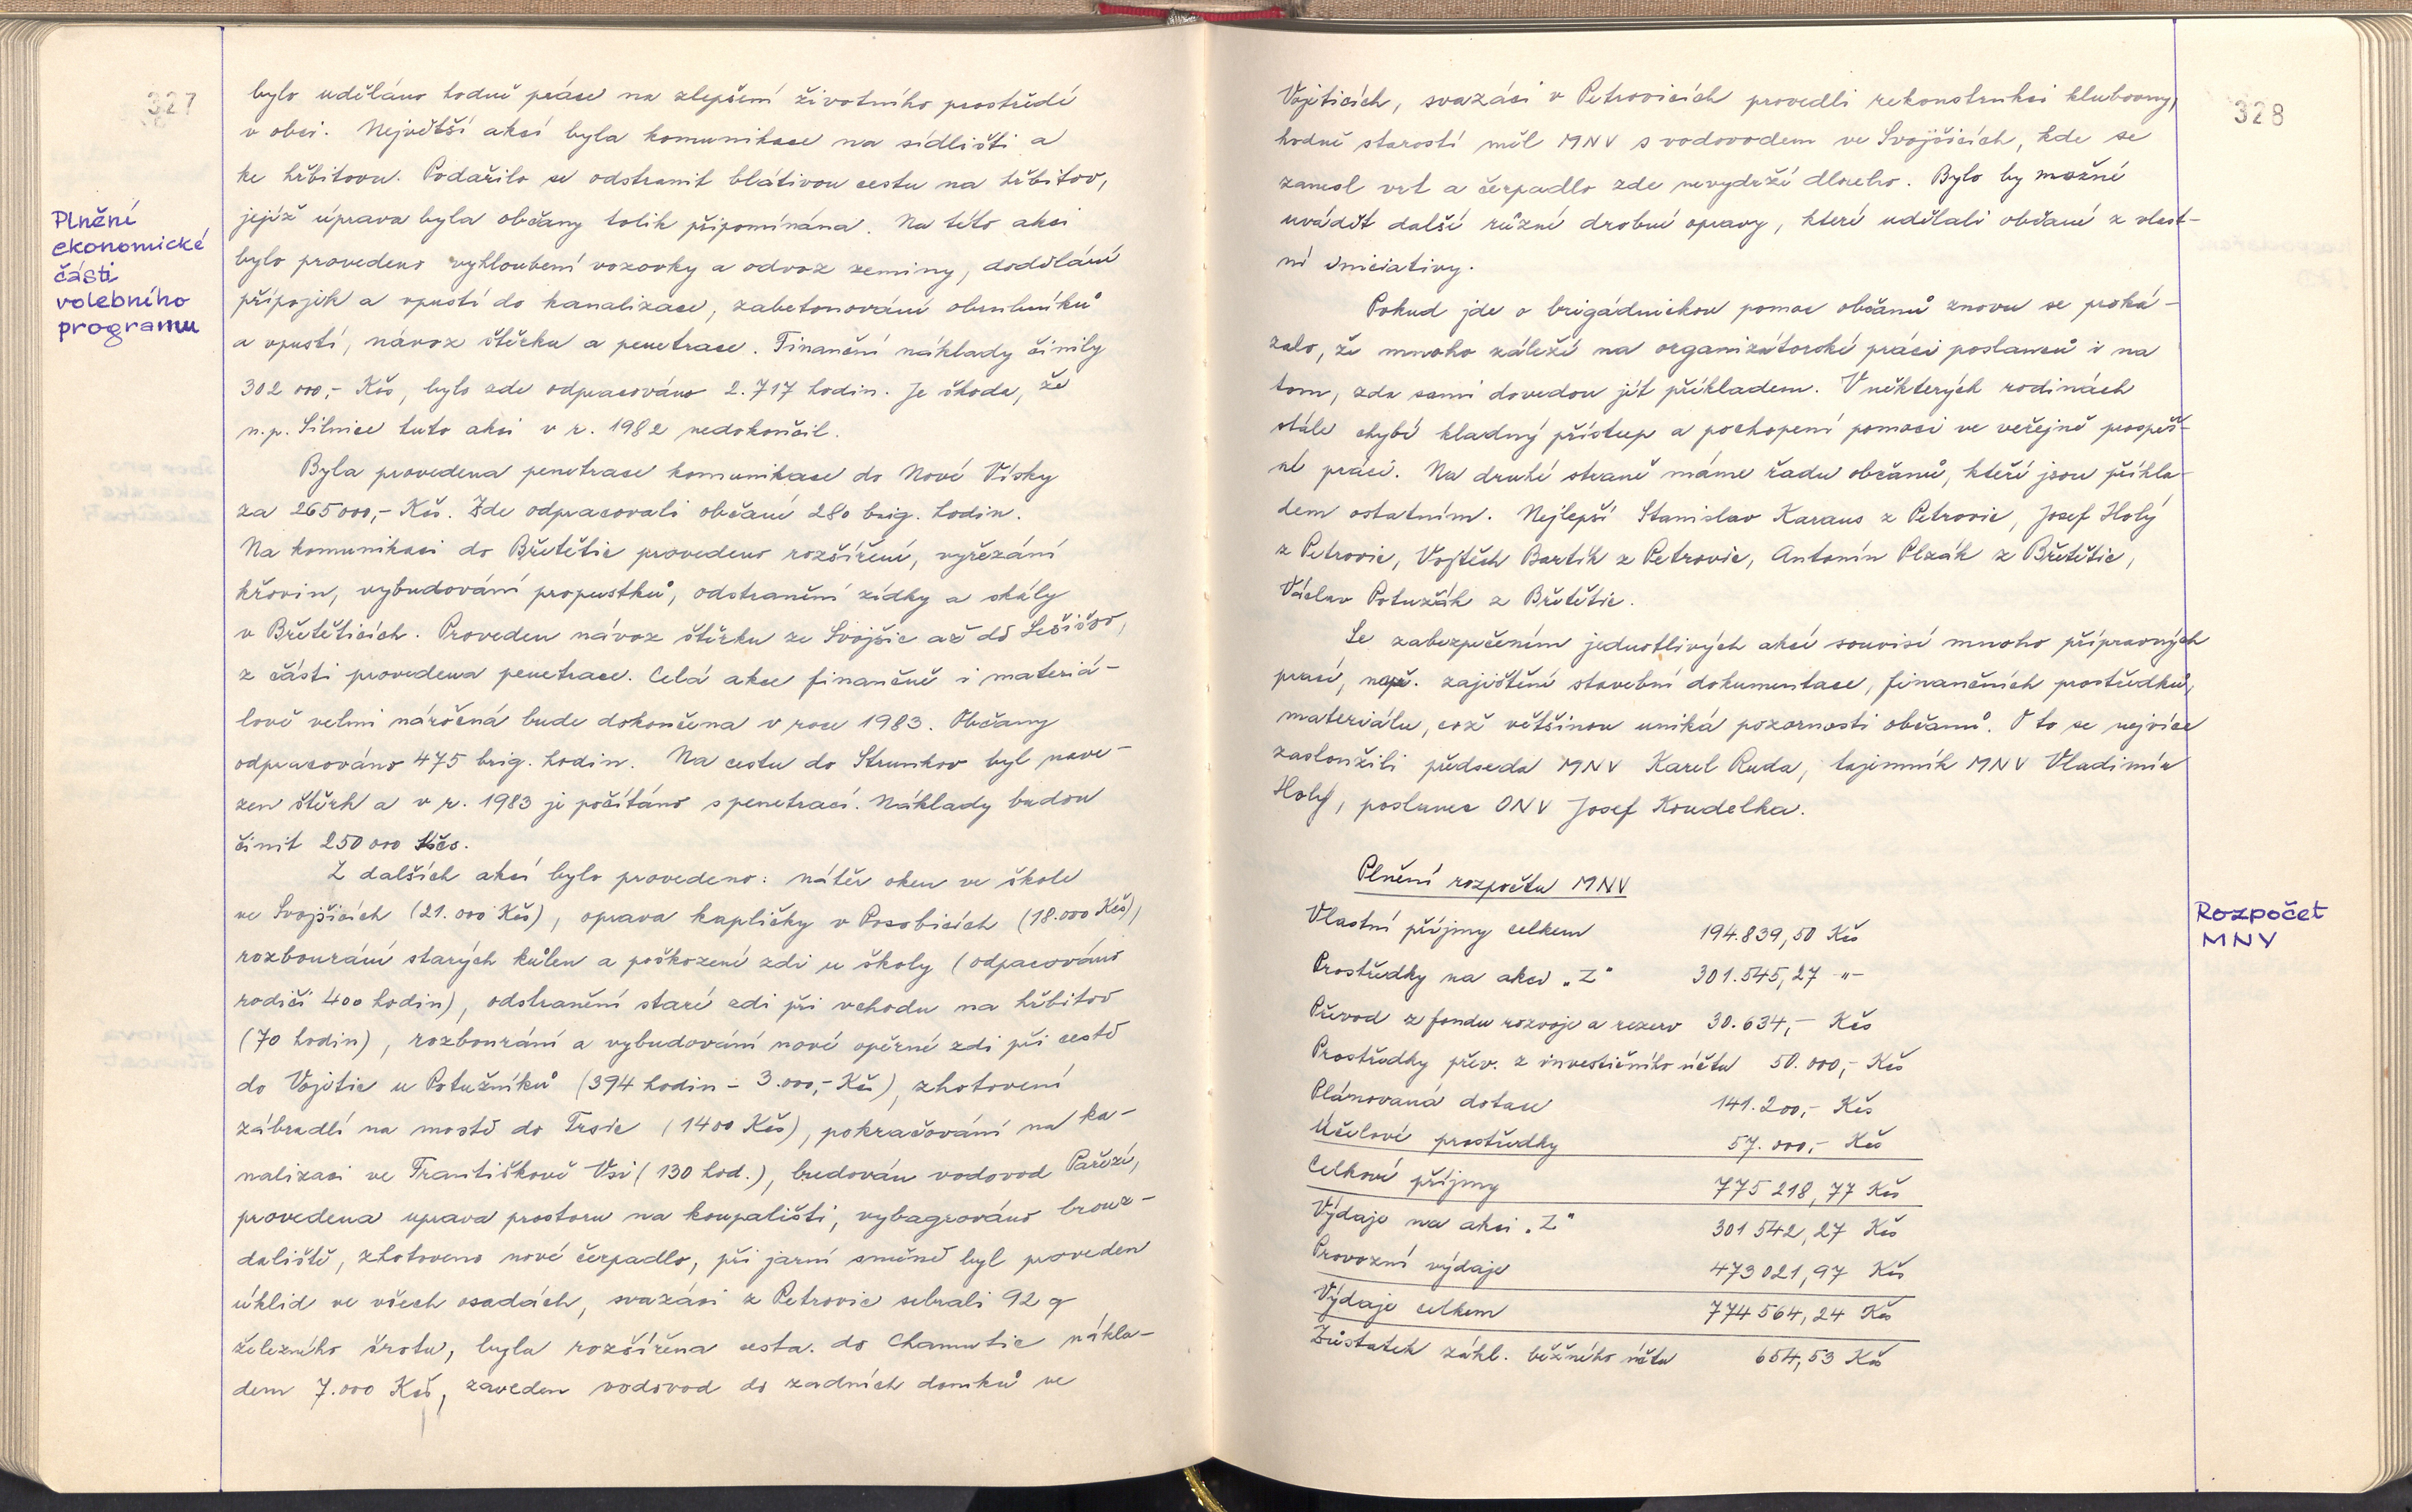 327
bylo uděláno hodně práce na zlepšení životního prostředí
v obci. Největší akcí byla komunikace na sídlišti a
ke hřbitovu. Podařilo se odstranit blátivou cestu na hřbitov,
jejíž úprava byla občany tolik připomínána. Na této akci
bylo provedeno vyhloubení vozovky a odvoz zeminy, dodělání
přípojek a vpustí do kanalizace, zabetonování obrubníků
a vpustí, návoz štěrku a penetrace. Finanční náklady činily
302 000,- Kčs, bylo zde odpracováno 2.717 hodin. Je škoda, že
n.p. Silnice tuto akci v r. 1982 nedokončil.
Plnění
ekonomické
části
volebního
programu
Byla provedena penetrace komunikace do Nové Vísky
za 265000,- Kčs. Zde odpracovali občané 280 brig. hodin.
Na komunikaci do Břetětic provedeno rozšíření, vyřezání
křovin, vybudování propustků, odstranění zídky a skály
v Břetěticích. Proveden návoz štěrku ze Svojšic až do Lešišov,
z části provedena penetrace. Celá akce finančně i materiá-
lově velmi náročná bude dokončena v roce 1983. Občany
odpracováno 475 brig. hodin. Na cestu do Strunkov byl nave-
zen štěrk a v r. 1983 je počítáno s penetrací. Náklady budou
činit 250 000 Kčs.
Z dalších akcí bylo provedeno: nátěr oken ve škole
ve Svojšicích (21.000 Kčs), oprava kapličky v Posobicích (18.000 Kčs),
rozbourání starých kůlen a poškození zdi u školy (odpacováno
rodiči 400 hodin), odstranění staré zdi při vchodu na hřbitov
(70 hodin), rozbourání a vybudování nové opěrné zdi při cestě
do Vojetic u Potužníků (394 hodin - 3.000,- Kčs), zhotovení
zábradlí na mostě do Trsic (1400 Kčs), pokračování na ka-
nalizaci ve Františkově Vsi (130 hod.), budován vodovod Pařezí,
provedena uprava prostoru na koupališti, vybagrováno brouz-
daliště, zhotoveno nové čerpadlo, při jarní směně byl proveden
úklid ve všech osadách, svazáci z Petrovic sebrali 92 q
železného šrotu, byla rozšířena cesta. do Chamutic nákla-
dem 7.000 Kčs, zaveden vodovod do zadních domků ve
328
Vojeticích, svazáci v Petrovicích provedli rekonstrukci klubovny,
hodně starostí měl MNV s vodovodem ve Svojšicích, kde se
zanesl vrt a čerpadlo zde nevydrží dlouho. Bylo by možné
uvádět další různé drobné opravy, které udělali občané z vlast-
ní iniciativy.
Pokud jde o brigádnickou pomoc občanů znovu se proká-
zalo, že mnoho záleží na organizátorské práci poslanců i na
tom, zda sami dovedou jít příkladem. V některých rodinách
stále chybí kladný přístup a pochopení pomoci ve veřejně prospěš-
né práci. Na druhé straně máme řadu občanů, kteří jsou příkla-
dem ostatním. Nejlepší Stanislav Karaus z Petrovic, Josef Holý
z Petrovic, Vojtěch Bartík z Petrovic, Antonín Plzák z Břetětic,
Václav Potužák z Břetětic.
Se zabezpečením jednotlivých akcí souvisí mnoho přípravných
prací, např. zajištění stavební dokumentace, finančních prostředků,
materiálu, což většinou uniká pozornosti občanů. O to se nejvíce
zasloužili předseda MNV Karel Ruda, tajemník MNV Vladimír
Holý, poslanec ONV Josef Koudelka.
Plnění rozpočtu MNV
Rozpočet
MNV
Vlastní příjmy celkem 194.839,50 Kčs
Prostředky na akci „Z" 301.545,27 -"-
Převod z fondu rozvoje a rezerv 30.634,- Kčs
Prostředky přev. z investičního účtu 50.000,- Kčs
Plánovaná dotace 141.200,- Kčs
Účelové prostředky 57.000,- Kčs
Celkové příjmy 775 218,77 Kčs
Výdaje na akci „Z" 301 542,27 Kčs
Provozní výdaje 473 021,97 Kčs
Výdaje celkem 774 564,24 Kčs
Zůstatek zákl. běžného účtu 654,53 Kčs